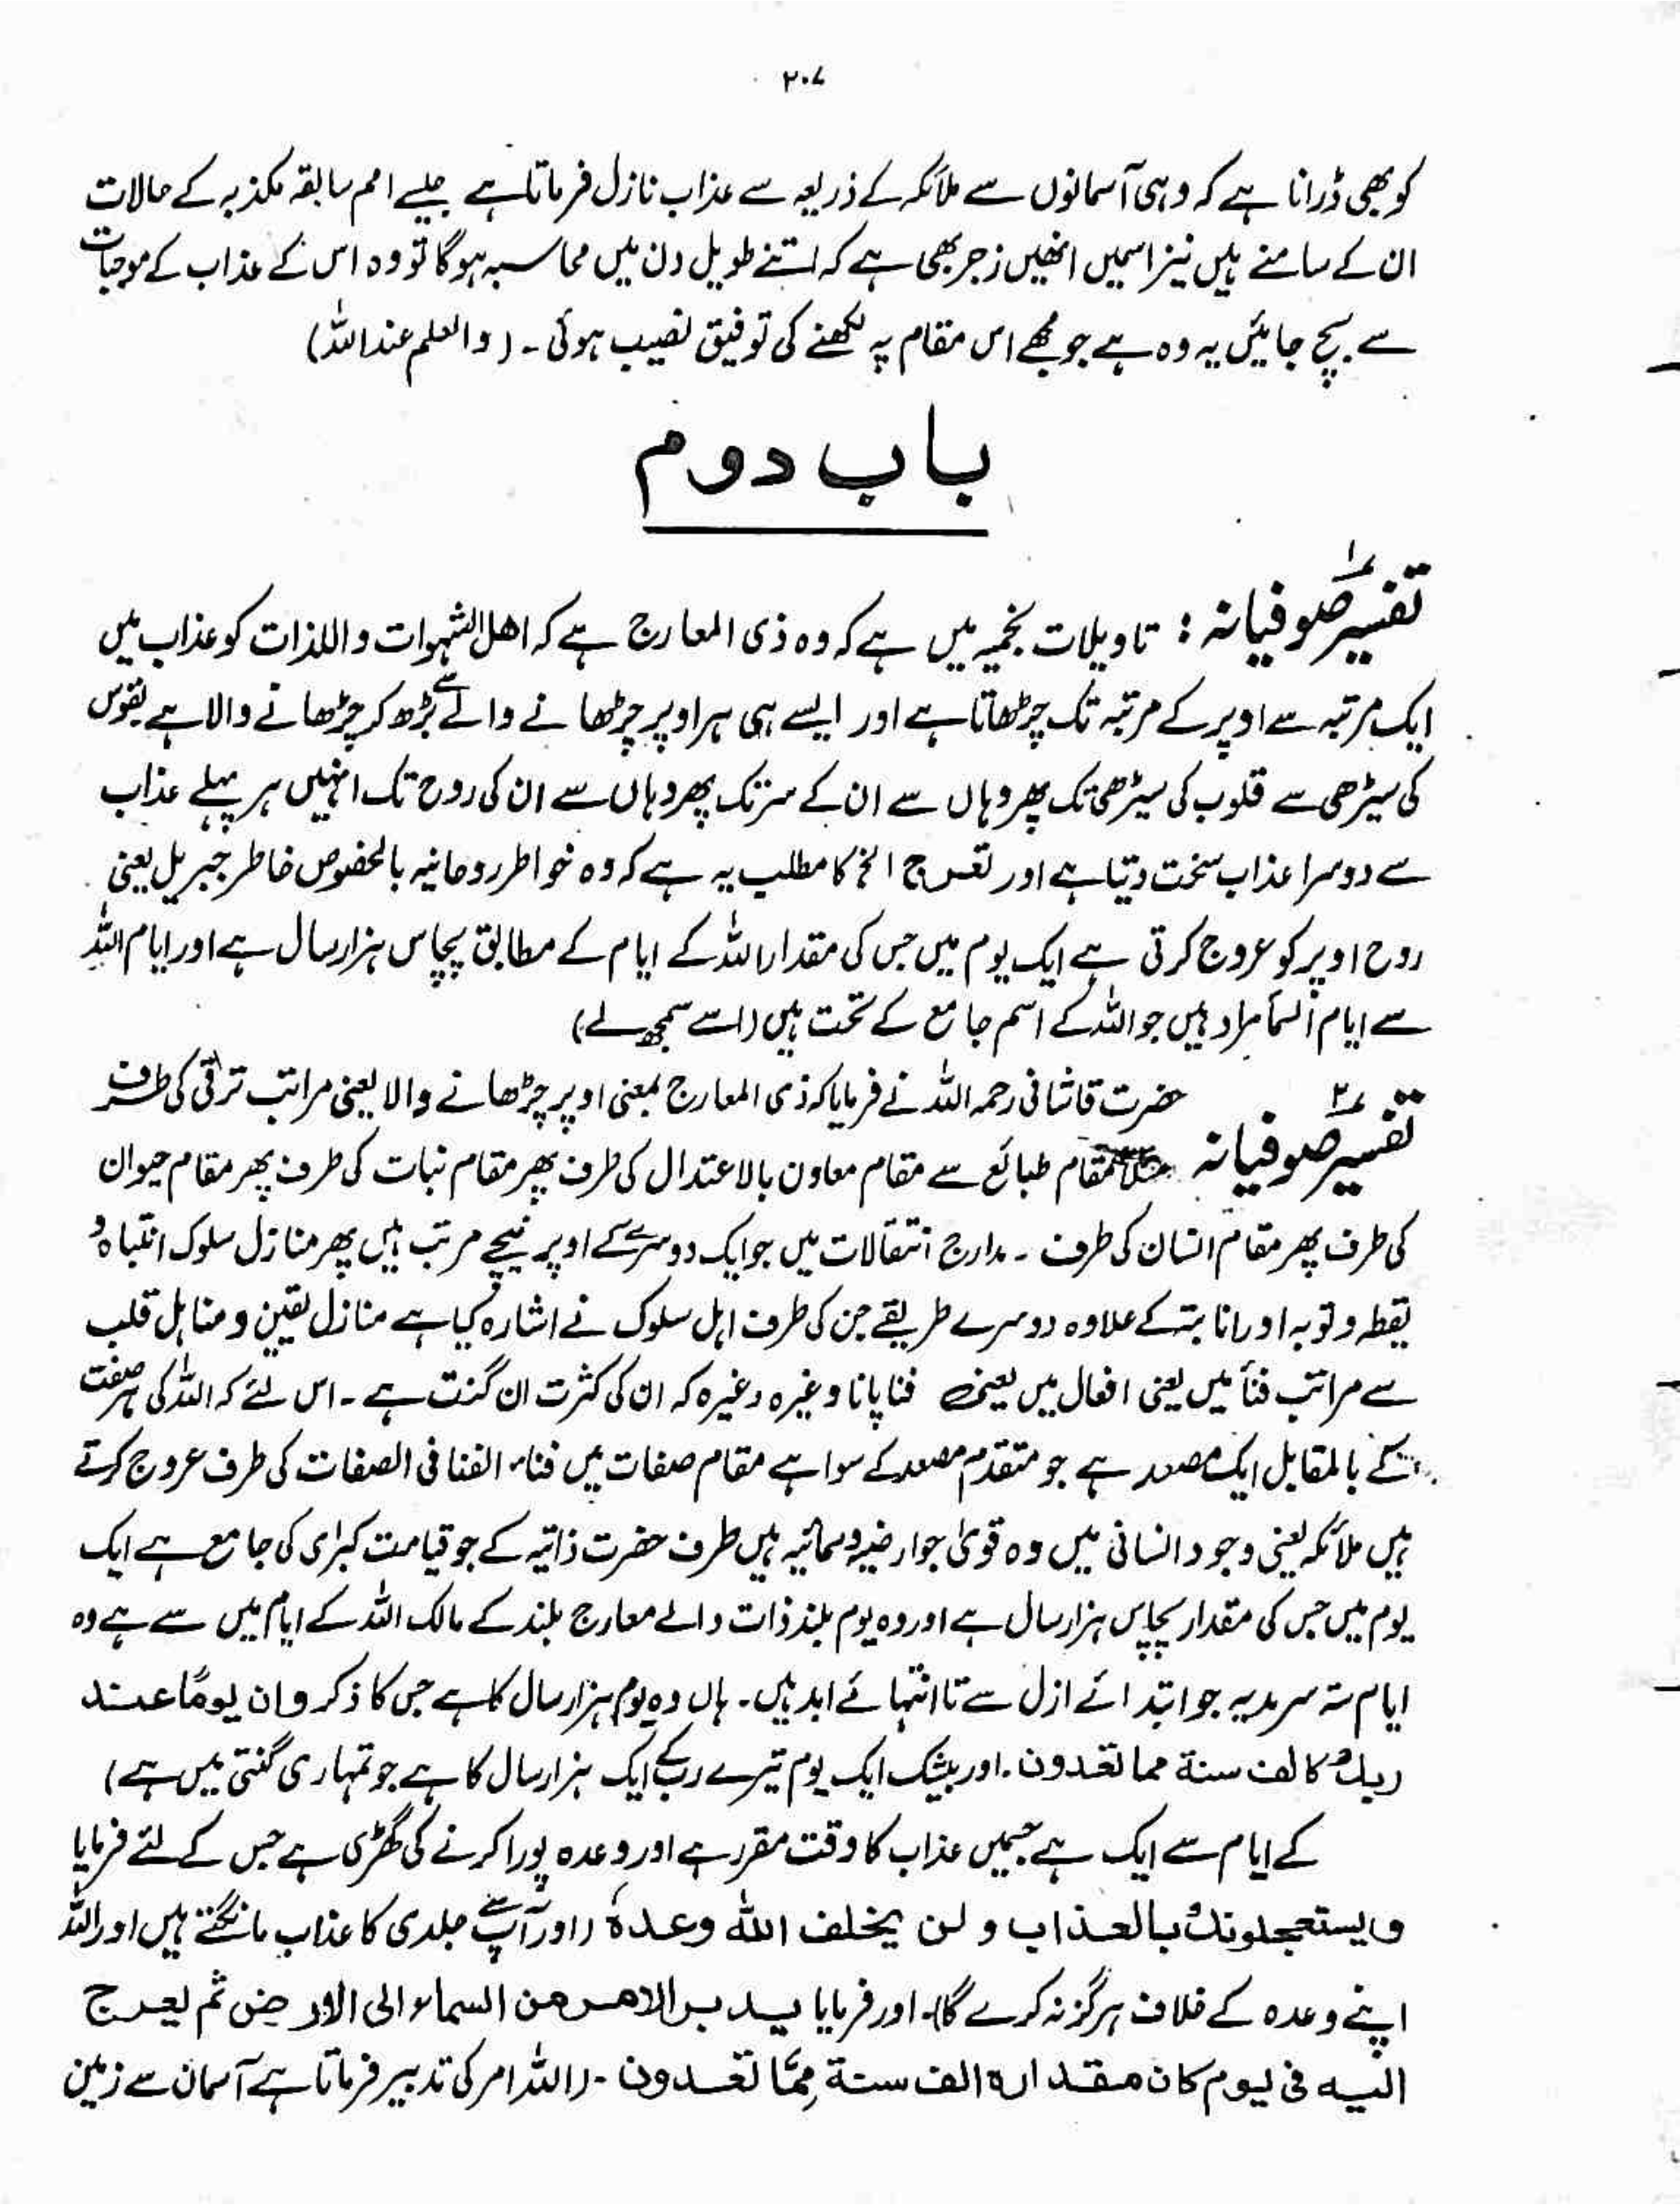 ۲۰۷
کو بھی ڈرانا ہے کہ وہی آسمانوں سے ملائکہ کے ذریعہ سے عذاب نازل فرماتا ہے جیسے امم سابقہ مکذبہ کے حالات
ان کے سامنے ہیں نیز اسمیں انھیں زجر بھی ہے کہ اتنے طویل دن میں محاسبہ ہوگا تو وہ اس کے عذاب کے موجبات
سے بچ جائیں یہ وہ ہے جو مجھے اس مقام پہ لکھنے کی توفیق نصیب ہوئی ۔ (والعلم عنداللہ)
باب دوم
تفسیر صوفیانہ ۱ : تاویلات نجمیہ میں ہے کہ وہ ذی المعارج ہے کہ اھل الشہوات و اللذات کو عذاب میں
ایک مرتبہ سے اوپر کے مرتبہ تک چڑھاتا ہے اور ایسے ہی ہر اوپر چڑھانے والے سے بڑھ کر چڑھانے والا ہے نفوس
کی سیڑھی سے قلوب کی سیڑھی تک پھر وہاں سے ان کے سر تک پھر وہاں سے ان کی روح تک انہیں ہر پہلے عذاب
سے دوسرا عذاب سخت دیتا ہے اور تعرج الخ کا مطلب یہ ہے کہ وہ خواطر روحانیہ بالخصوص خاطر جبریل یعنی
روح اوپر کو عروج کرتی ہے ایک یوم میں جس کی مقدار اللہ کے ایام کے مطابق پچاس ہزار سال ہے اور ایام اللہ
سے ایام السما مراد ہیں جو اللہ کے اسم جامع کے تحت ہیں (اسے سمجھ لے)
تفسیر صوفیانہ ۲ حضرت قاشانی رحمہ اللہ نے فرمایا کہ ذی المعارج بمعنی اوپر چڑھانے والا یعنی مراتب ترقی کی طرف
مقام طبائع سے مقام معاون بالاعتدال کی طرف پھر مقام نبات کی طرف پھر مقام حیوان
کی طرف پھر مقام انسان کی طرف ۔ مدارج انتقالات میں جو ایک دوسرے کے اوپر نیچے مرتب ہیں پھر منازل سلوک انتباہ و
یقظہ و توبہ اور انابتہ کے علاوہ دوسرے طریقے جن کی طرف اہل سلوک نے اشارہ کیا ہے منازل یقین و مناہل قلب
سے مراتب فنأ میں یعنی افعال میں یعنی فنا پانا وغیرہ وغیرہ کہ ان کی کثرت ان گنت ہے ۔ اس لئے کہ اللہ کی ہر صفت
کے بالمقابل ایک مصعد ہے جو متقدم مصعد کے سوا ہے مقام صفات میں فناء الفنا فی الصفات کی طرف عروج کرتے
ہیں ملائکہ یعنی وجود انسانی میں وہ قویٰ جو ارضیہ و سمائیہ ہیں طرف حضرت ذاتیہ کے جو قیامت کبرای کی جامع ہے ایک
یوم میں جس کی مقدار پچاس ہزار سال ہے اور وہ یوم بلند ذات والے معارج بلند کے مالک اللہ کے ایام میں سے ہے وہ
ایام ستہ سرمدیہ جو ابتدائے ازل سے تا انتہائے ابد ہیں ۔ ہاں وہ یوم ہزار سال کا ہے جس کا ذکر وان یومًا عند
ربک کالف سنة مما تعدون ۔ اور بیشک ایک یوم تیرے رب کے ایک ہزار سال کا ہے جو تمہاری گنتی میں ہے)
کے ایام سے ایک ہے جسمیں عذاب کا وقت مقرر ہے اور وعدہ پورا کرنے کی گھڑی ہے جس کے لئے فرمایا
و یستعجلونک بالعذاب و لن یخلف اللہ وعدہ (اور آپ سے جلدی کا عذاب مانگتے ہیں اور اللہ
اپنے وعدہ کے خلاف ہرگز نہ کرے گا)۔ اور فرمایا یدبر الامر من السماء الی الارض ثم یعرج
الیه فی یوم کان مقداره الف سنة مِمَّا تعدون ۔ (اللہ امر کی تدبیر فرماتا ہے آسمان سے زمین